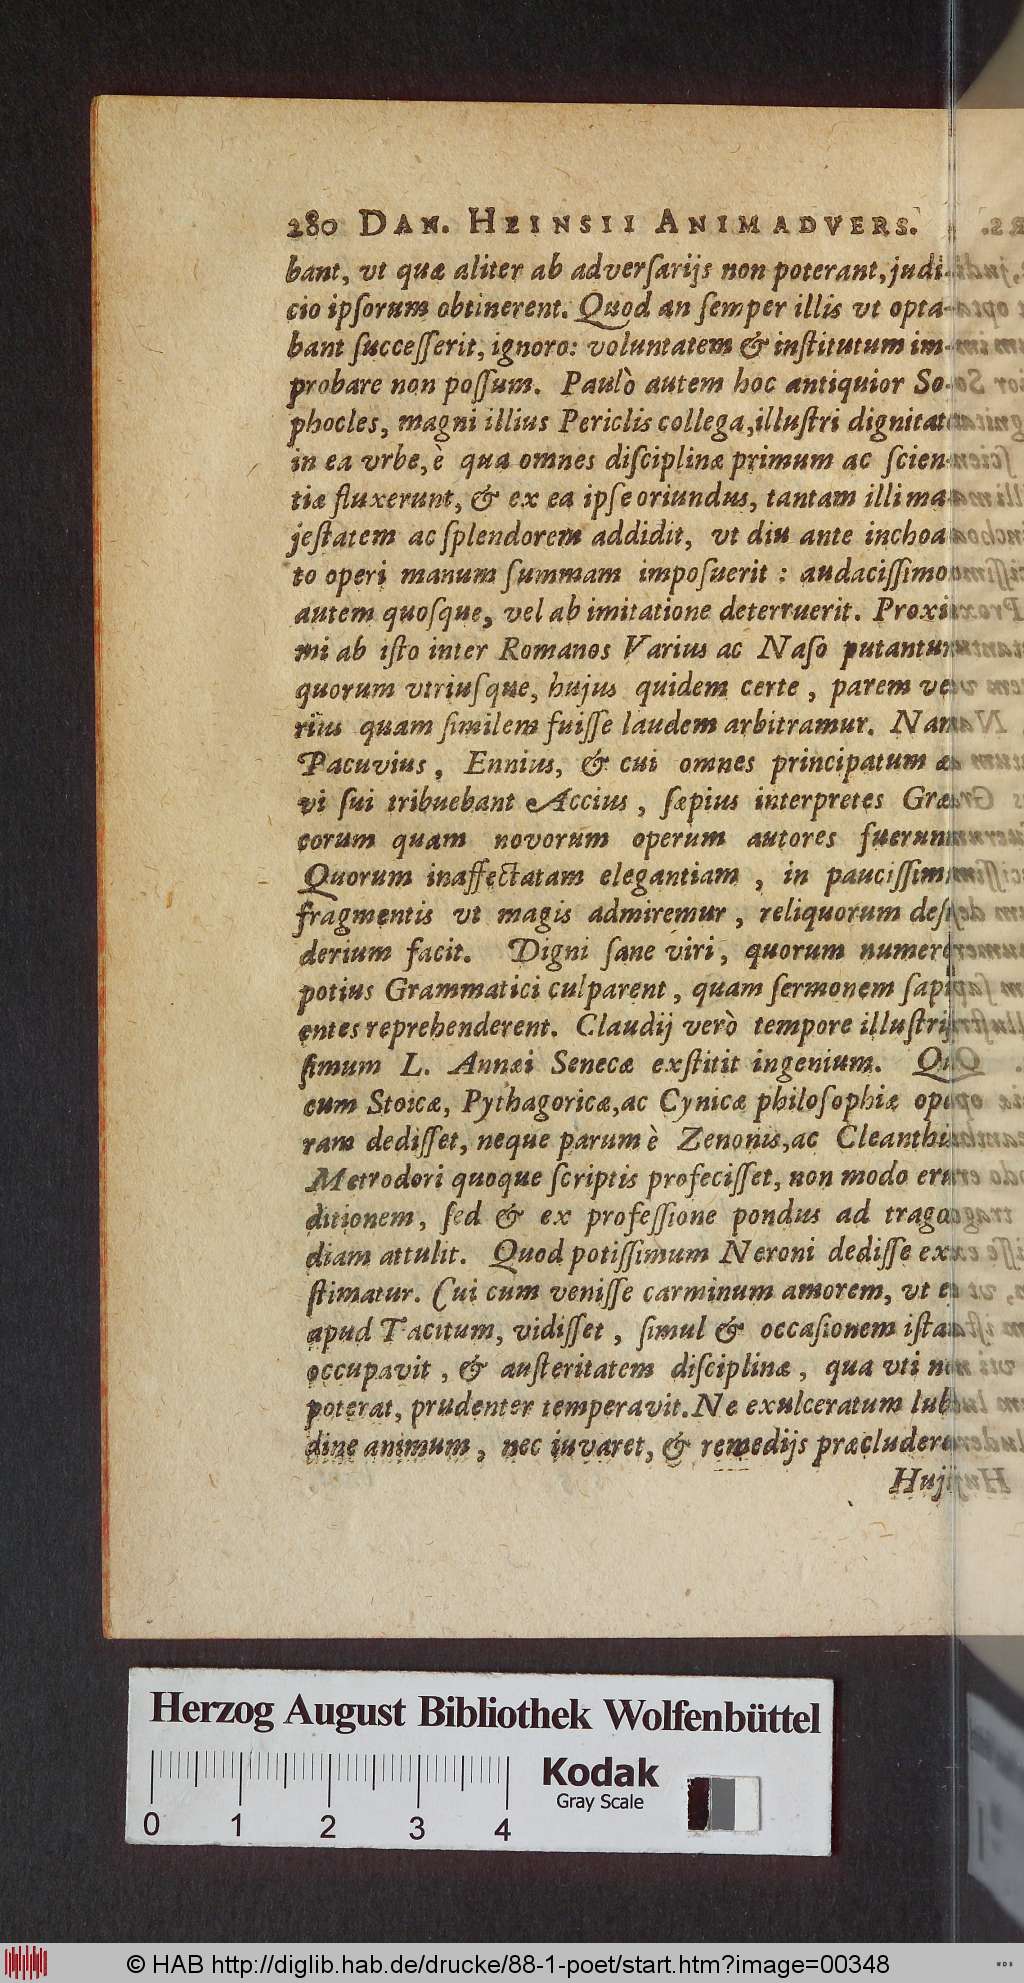 280 DAN. HEINSII ANIMADVERS.
bant, vt quæ aliter ab adverſarijs non poterant, judi-
cio ipſorum obtinerent. Quod an ſemper illis vt opta-
bant ſucceſſerit, ignoro: voluntatem & inſtitutum im-
probare non poſſum. Paulò autem hoc antiquior So-
phocles, magni illius Periclis collega, illuſtri dignitate
in ea vrbe, è qua omnes diſciplinæ primum ac ſcien-
tiæ fluxerunt, & ex ea ipſe oriundus, tantam illi ma-
jeſtatem ac ſplendorem addidit, vt diu ante inchoa-
to operi manum ſummam impoſuerit : audaciſſimo
autem quoſque, vel ab imitatione deterruerit. Proxi-
mi ab iſto inter Romanos Varius ac Naſo putantur
quorum vtriuſque, hujus quidem certe, parem ve-
rius quam ſimilem fuiſſe laudem arbitramur. Nam
Pacuvius, Ennius, & cui omnes principatum æ-
vi ſui tribuebant Accius, ſæpius interpretes Græ-
corum quam novorum operum autores fuerunt
Quorum inaffectatam elegantiam, in pauciſſimis
fragmentis vt magis admiremur, reliquorum deſi-
derium facit. Digni ſane viri, quorum numero
potius Grammatici culparent, quam ſermonem ſapi-
entes reprehenderent. Claudij verò tempore illuſtriſ-
ſimum L. Annæi Senecæ exſtitit ingenium. Qui
cum Stoicæ, Pythagoricæ, ac Cynicæ philoſophiæ ope-
ram dediſſet, neque parum è Zenonis, ac Cleanthis
Metrodori quoque ſcriptis profeciſſet, non modo eru-
ditionem, ſed & ex profeſſione pondus ad tragœ-
diam attulit. Quod potiſſimum Neroni dediſſe exi-
ſtimatur. Cui cum veniſſe carminum amorem, vt eſt
apud Tacitum, vidiſſet, ſimul & occaſionem iſtam
occupavit, & auſteritatem diſciplinæ, qua vti non
poterat, prudenter temperavit. Ne exulceratum lubi-
dine animum, nec iuvaret, & remedijs præcluderet
Hujus
Herzog August Bibliothek Wolfenbüttel
Kodak
Gray Scale
0 1 2 3 4
© HAB http://diglib.hab.de/drucke/88-1-poet/start.htm?image=00348